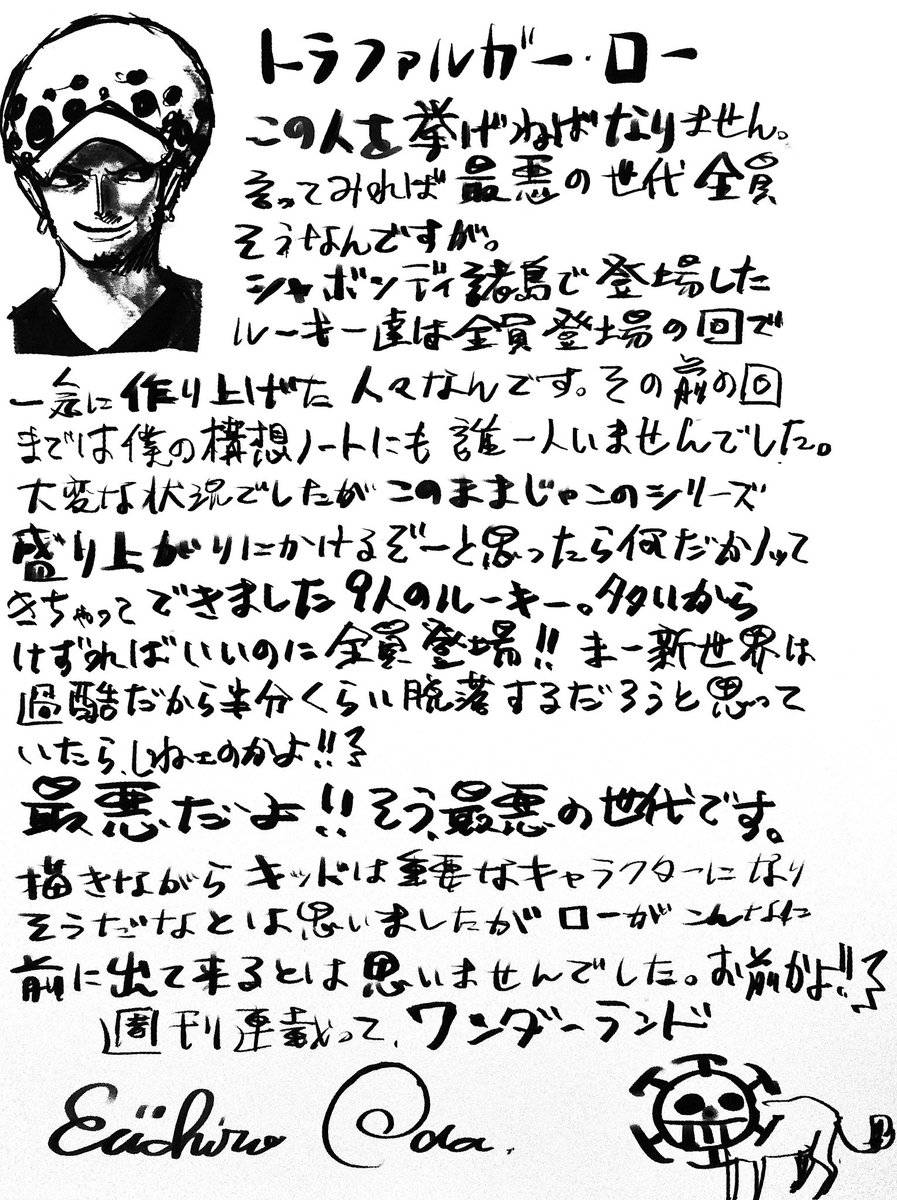 トラファルガー・ロー
この人を挙げねばなりません。
言ってみれば最悪の世代全員
そうなんですが。
シャボンディ諸島で登場した
ルーキー達は全員登場の回で
一気に作り上げた人々なんです。その前の回
までは僕の構想ノートにも誰一人いませんでした。
大変な状況でしたがこのままじゃこのシリーズ
盛り上がりにかけるぞーと思ったら何だかノッて
きちゃってできました9人のルーキー。多いから
けずればいいのに全員登場!! まー新世界は
過酷だから半分くらい脱落するだろうと思って
いたら、しねェのかよ!!
最悪だよ!! そう、最悪の世代です。
描きながらキッドは重要なキャラクターになり
そうだなとは思いましたがローがこんなに
前に出て来るとは思いませんでした。お前かよ!!
週刊連載って、ワンダーランド
Eiichiro Oda.